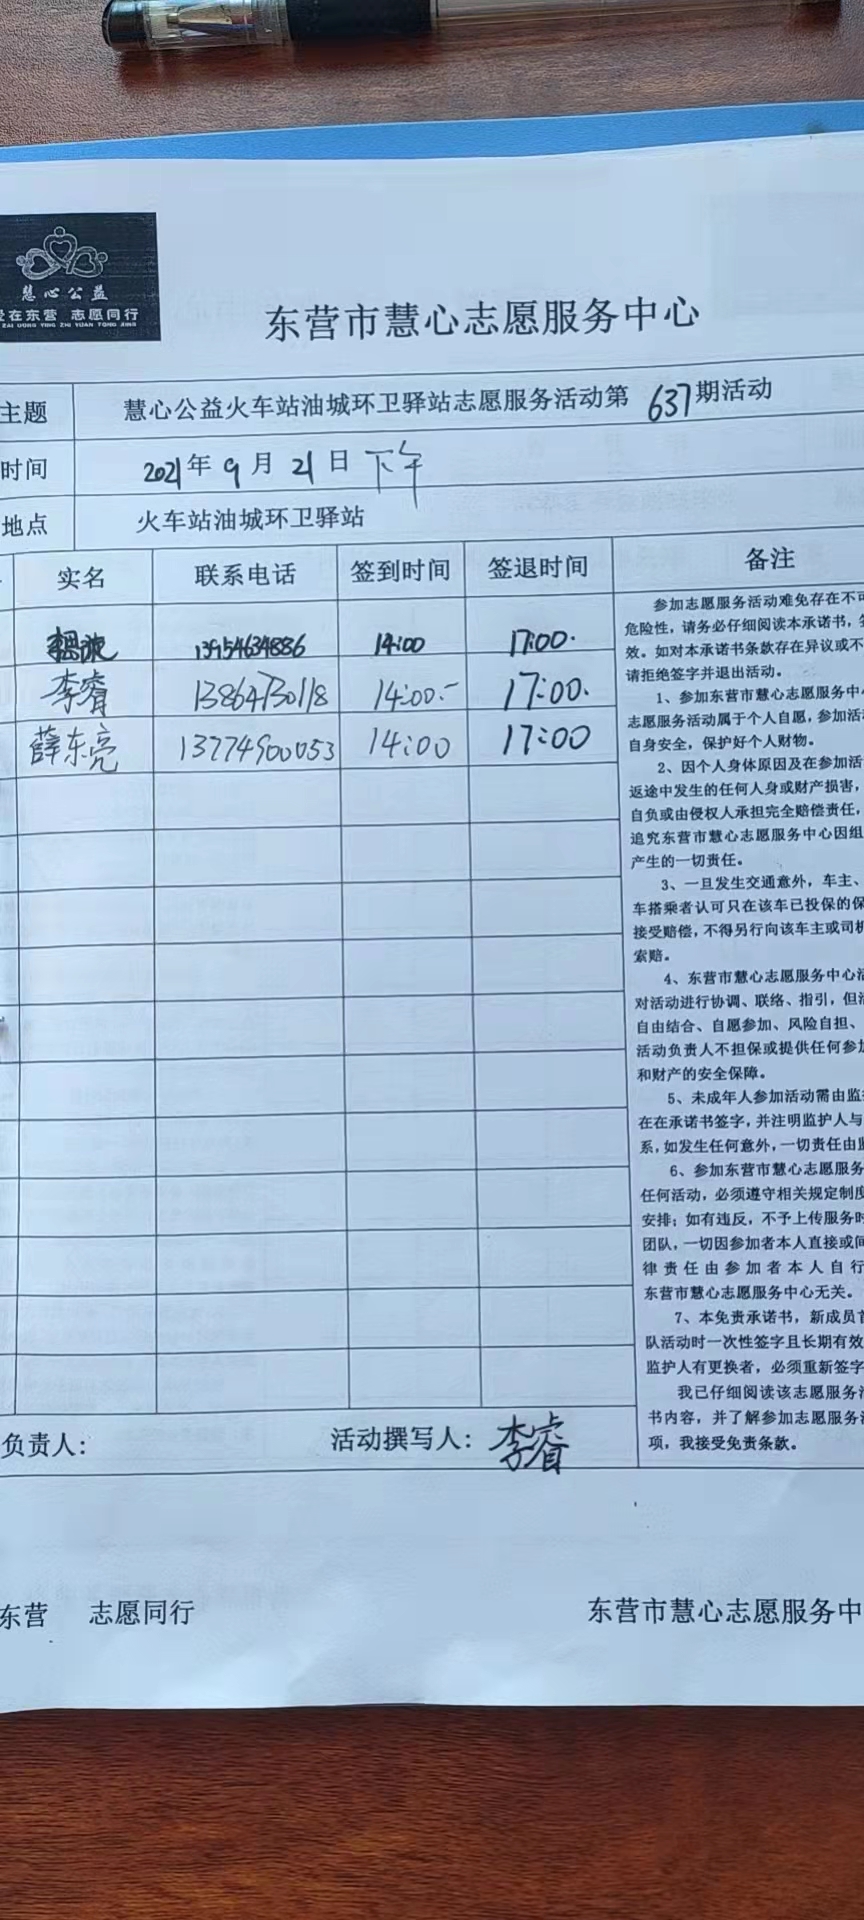 慧心公益
爱在东营 志愿同行
ZAI DONG YING ZHI YUAN TONG XING
东营市慧心志愿服务中心
主题 慧心公益火车站油城环卫驿站志愿服务活动第637期活动
时间 2021年9月21日下午
地点 火车站油城环卫驿站
实名 联系电话 签到时间 签退时间 备注
13954634886 14:00 17:00.
李睿 13864730118 14:00.- 17:00.
薛东亮 13774900053 14:00 17:00
参加志愿服务活动难免存在不可
危险性，请务必仔细阅读本承诺书，签
效。如对本承诺书条款存在异议或不
请拒绝签字并退出活动。
1、参加东营市慧心志愿服务中心
志愿服务活动属于个人自愿，参加活动
自身安全，保护好个人财物。
2、因个人身体原因及在参加活
返途中发生的任何人身或财产损害，
自负或由侵权人承担完全赔偿责任，
追究东营市慧心志愿服务中心因组
产生的一切责任。
3、一旦发生交通意外，车主、
车搭乘者认可只在该车已投保的保
接受赔偿，不得另行向该车主或司机
索赔。
4、东营市慧心志愿服务中心活
对活动进行协调、联络、指引，但活
自由结合、自愿参加、风险自担、
活动负责人不担保或提供任何参加
和财产的安全保障。
5、未成年人参加活动需由监
在在承诺书签字，并注明监护人与
系，如发生任何意外，一切责任由监
6、参加东营市慧心志愿服务
任何活动，必须遵守相关规定制度
安排；如有违反，不予上传服务时
团队，一切因参加者本人直接或间
律责任由参加者本人自行
东营市慧心志愿服务中心无关。
7、本免责承诺书，新成员首
队活动时一次性签字且长期有效
监护人有更换者，必须重新签字
我已仔细阅读该志愿服务活
书内容，并了解参加志愿服务活
项，我接受免责条款。
负责人： 活动撰写人：李睿
东营 志愿同行 东营市慧心志愿服务中